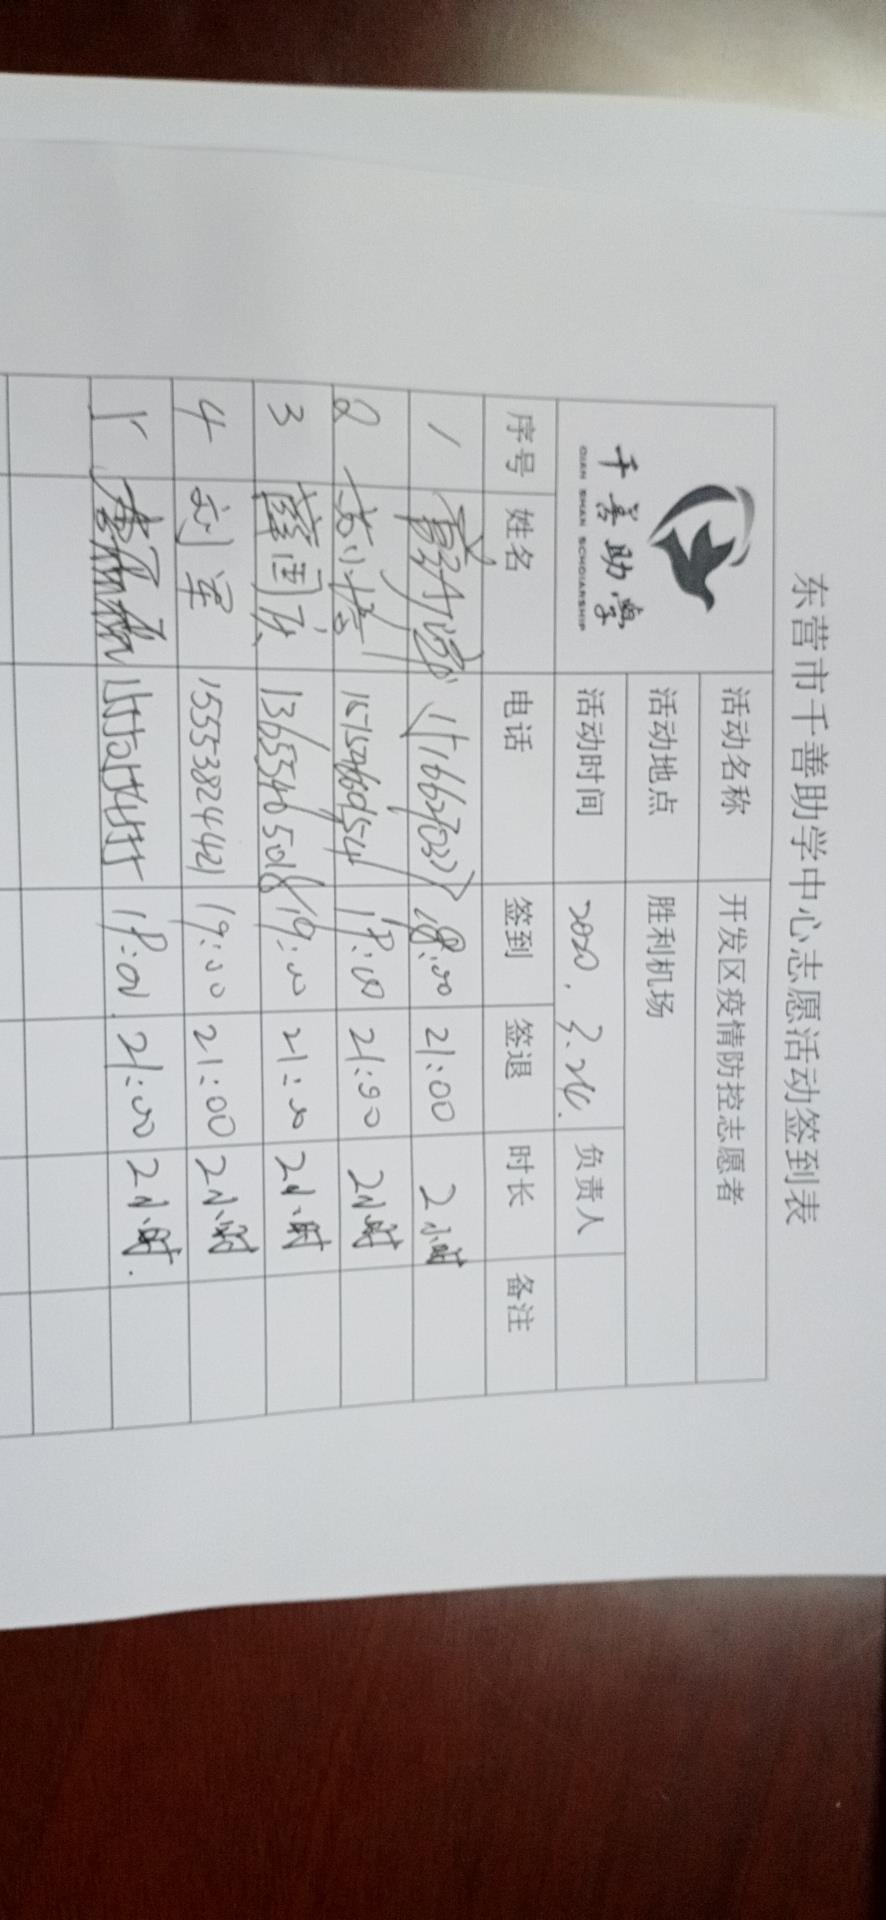 东营市千善助学中心志愿活动签到表
千善助学
QIAN SHAN SCHOLARSHIP
活动名称 开发区疫情防控志愿者
活动地点 胜利机场
活动时间 2020.3.24. 负责人
序号 姓名 电话 签到 签退 时长 备注
1 18:00 21:00 2小时
2 21:00 2小时
3 薛国庆 19:00 21:00 2小时
4 刘军 15553824421 19:00 21:00 2小时
5 21:00 2小时.